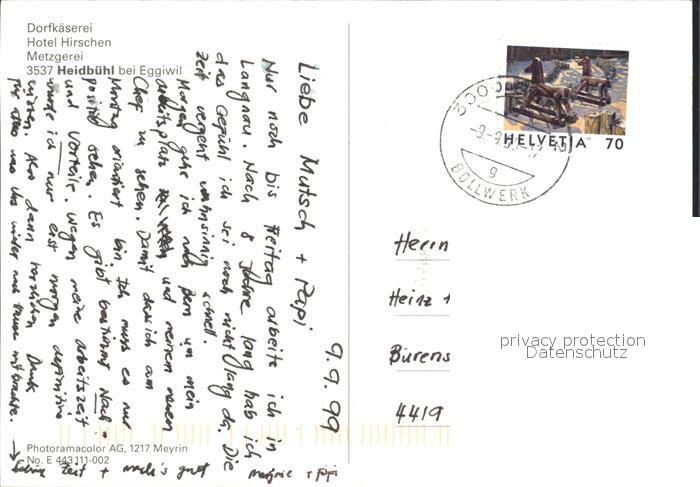 Dorfkäserei
Hotel Hirschen
Metzgerei
3537 Heidbühl bei Eggiwil
9.9.99
Liebe Mutsch + Papi
Nur noch bis Freitag arbeite ich in
Langnau. Nach 8 Jahre lang hab ich
das Gefühl ich sei noch nicht lang da. Die
Zeit vergeht wahnsinnig schnell.
Morgen gehe ich nach Bern um mein
Arbeitsplatz und meinen neuen
Chef zu sehen. Damit dass ich am
Montag orientiert bin. Ich muss es nur
positiv sehen. Es gibt bestimmt Nach-
und Vorteile. Wegen meine Arbeitszeit
werde ich nur erst morgen definitiv
wissen. Also dann herzlichen Dank
für alles was ihr wieder
Zeit + mach's gut
HELVETIA 70
3000
-9.-9.99
9
BOLLWERK
Herrn
Heinz
Bürens
4419
privacy protection
Datenschutz
Photoramacolor AG, 1217 Meyrin
No. E 443 111-002